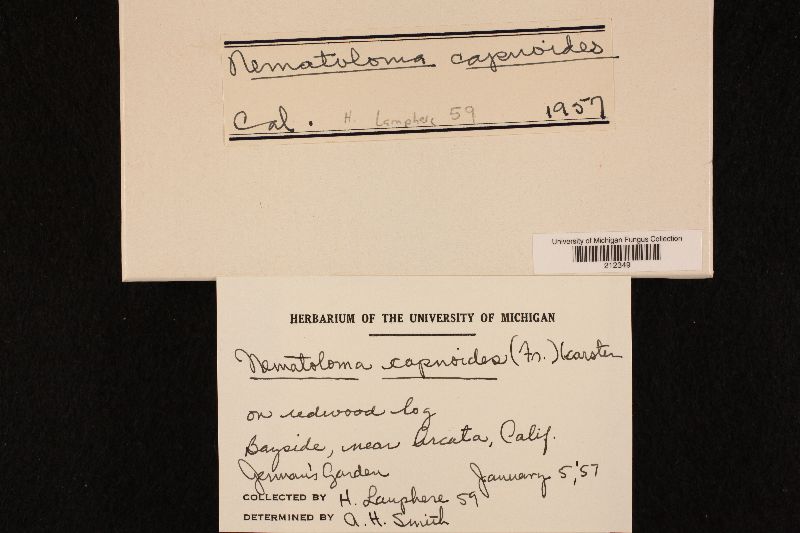 Nematoloma capnoides
Cal. H. Lamphere 59 1957
University of Michigan Fungus Collection
212349
HERBARIUM OF THE UNIVERSITY OF MICHIGAN
Nematoloma capnoides (Fr.) Karsten
on redwood log
Bayside, near Arcata, Calif.
German's Garden January 5, '57
COLLECTED BY H. Lamphere 59
DETERMINED BY A. H. Smith